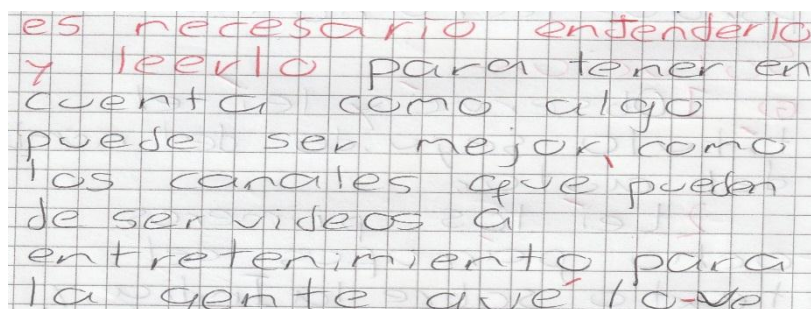 es necesario entenderlo
y leerlo para tener en
cuenta como algo
puede ser mejor, como
los canales que pueden
de ser videos a
entretenimiento para
la gente que lo ve